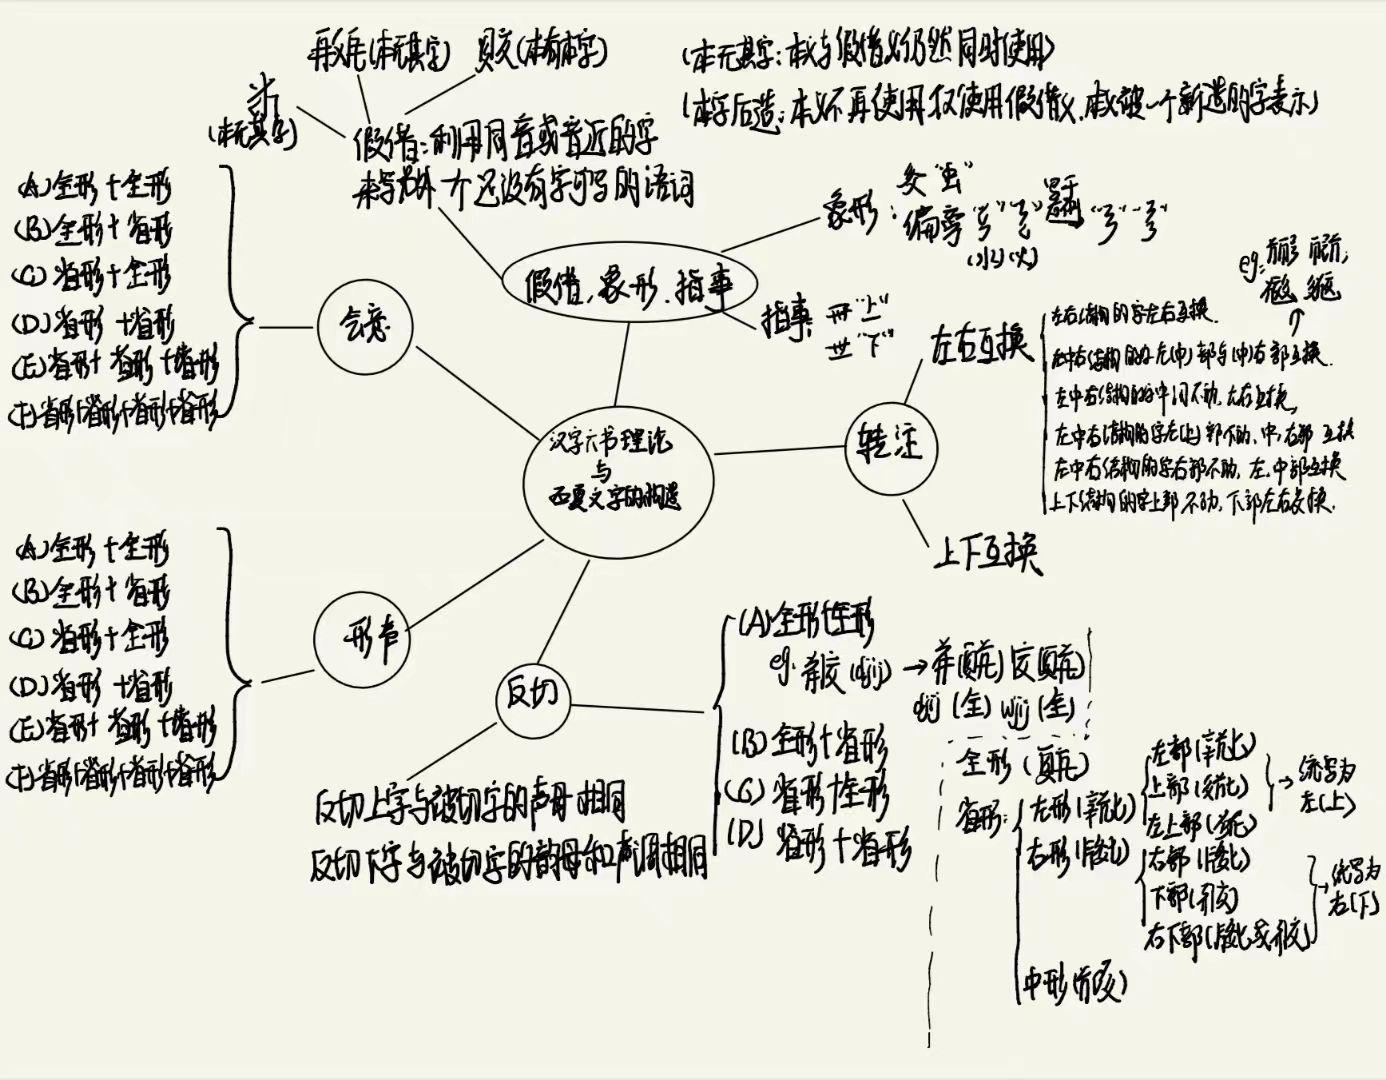 (本无其字)
(本有本字)
(本无其字)
(本无其字:本义与假借义仍然同时使用)
(本字后造:本义不再使用,仅使用假借义,本义被一个新造的字表示)
假借:利用同音或音近的字
来写另外一个还没有字可写的语词
假借、象形、指事
象形:
"虫"
偏旁
(水)(火)
指事:
"上"
"下"
会意
(A)全形+全形
(B)全形+省形
(C)省形+全形
(D)省形+省形
(E)省形+省形+省形
(F)省形+省形+省形+省形
汉字六书理论
与
西夏文字的构造
转注
左右互换
左右结构的字左右互换.
左中右结构的字左(中)部与(中)右部互换.
eg:
左中右结构的字中间不动,左右互换,
左中右结构的字左(上)部不动,中,右部互换
左中右结构的字右部不动,左,中部互换
上下结构的字上部不动,下部左右互换.
上下互换
形声
(A)全形+全形
(B)全形+省形
(C)省形+全形
(D)省形+省形
(E)省形+省形+省形
(F)省形+省形+省形+省形
反切
反切上字与被切字的声母相同
反切下字与被切字的韵母和声调相同
(A)全形+全形
eg.
(B)全形+省形
(C)省形+全形
(D)省形+省形
全形
省形:
左形
右形
中形
左部
上部
左上部
→统写为
左(上)
右部
下部
右下部
→统写为
右(下)